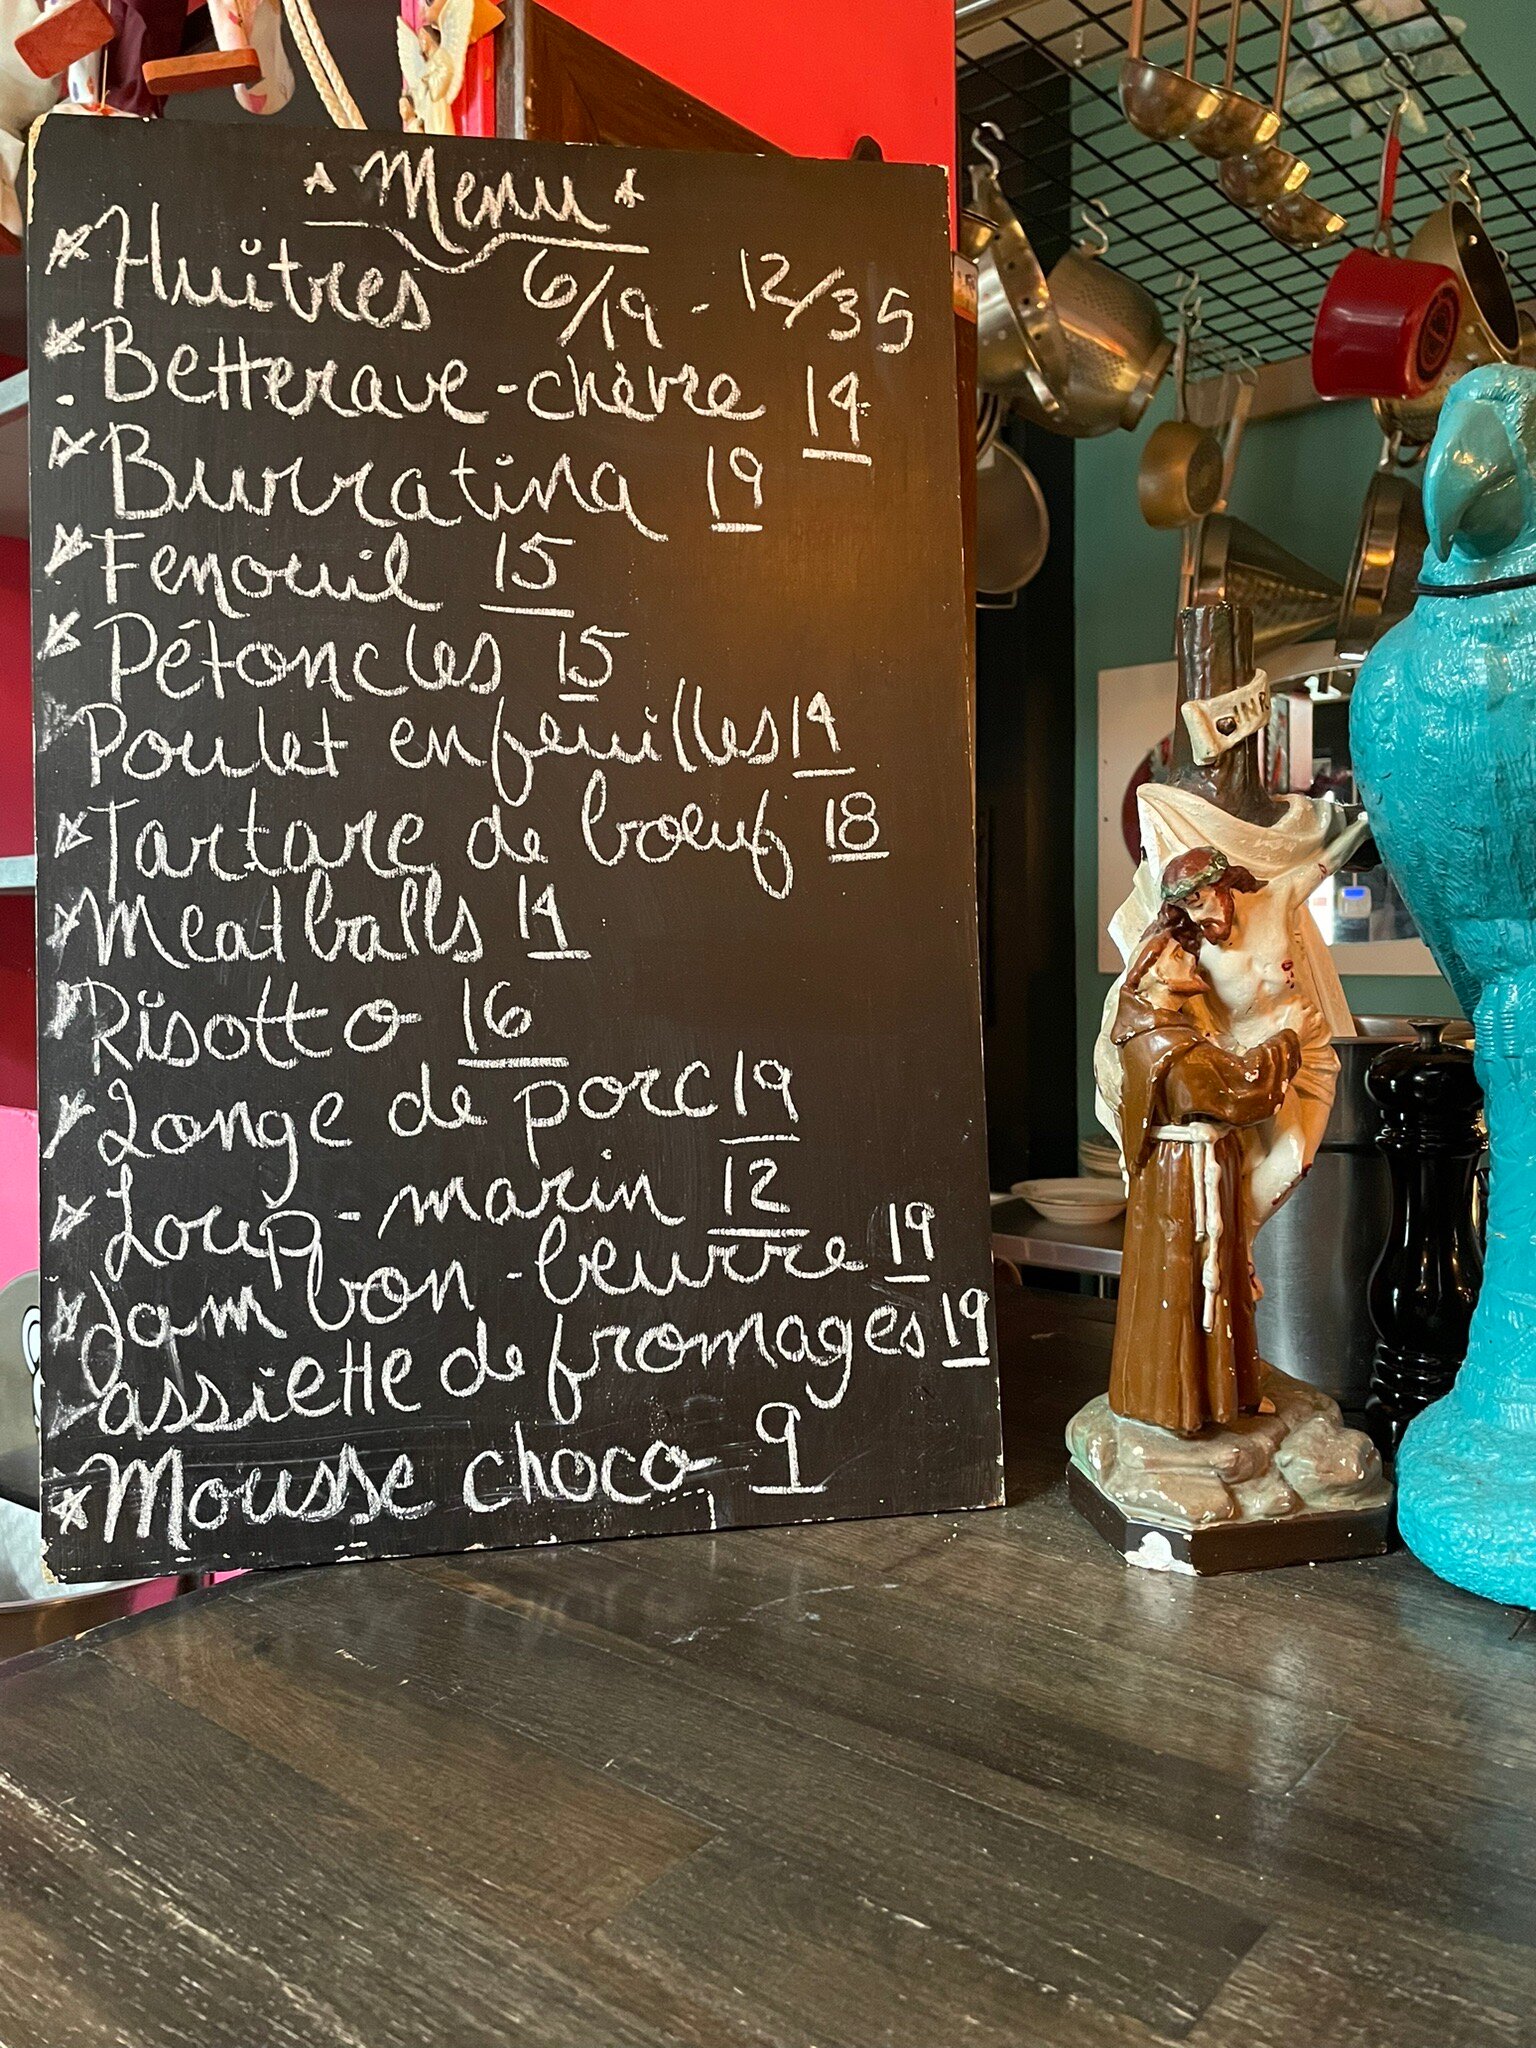 Menu
Huîtres 6/19 - 12/35
Betterave-chèvre 14
Burratina 19
Fenouil 15
Pétoncles 15
Poulet en feuilles 14
Tartare de boeuf 18
Meatballs 14
Risotto 16
Longe de porc 19
Loup-marin 12
Jambon-beurre 19
assiette de fromages 19
Mousse choco 9
INRI